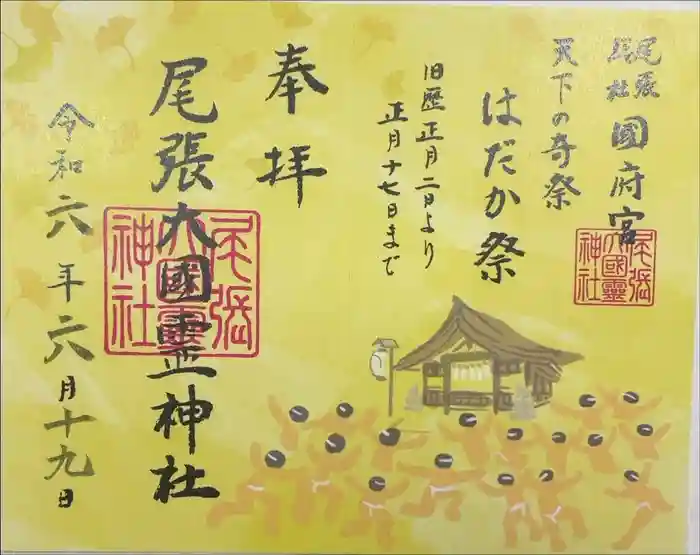 尾張
總社
國府宮
尾張
大國靈
神社
天下の奇祭
はだか祭
旧歴正月二日より
正月十七日まで
奉拝
尾張大國霊神社
尾張
大國靈
神社
令和六年六月十九日